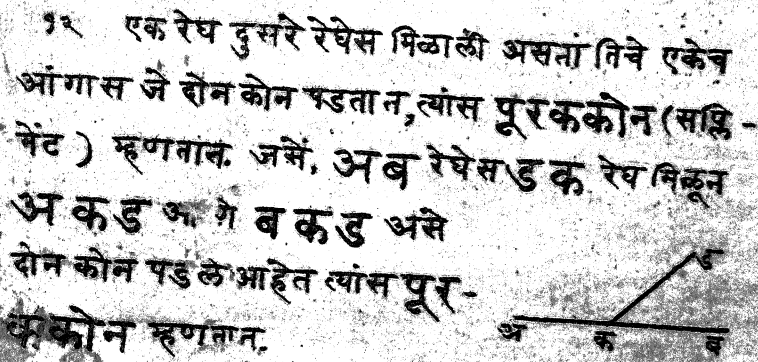 १२ एक रेघ दुसरे रेघेस मिळाली असतां तिचे एकेच
आंगास जे दोन कोन पडतात, त्यांस पूरककोन (सप्लि-
मेंट) म्हणतात. जसें, अब रेघेस डक रेघ मिळून
अकड आ॰ णे बकड असे
दोन कोन पडले आहेत त्यांस पूर-
ककोन म्हणतात.
ड
अ क ब